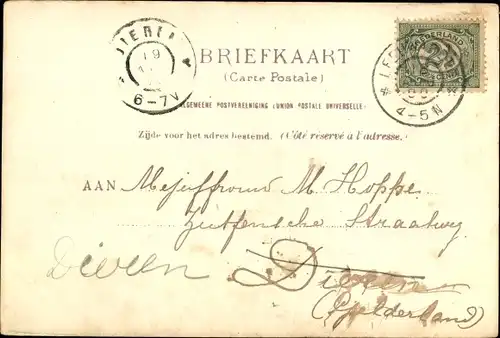 DIEREN
19
6-7V
BRIEFKAART
(Carte Postale)
NEDERLAND
2½
CENT
4-5N
ALGEMEENE POSTVEREENIGING (UNION POSTALE UNIVERSELLE)
Zijde voor het adres bestemd. (Côté réservé à l'adresse.
AAN Mejuffrouw M. Hoppe
Zutfensche Straatweg
Dieren Dieren
(Gelderland)